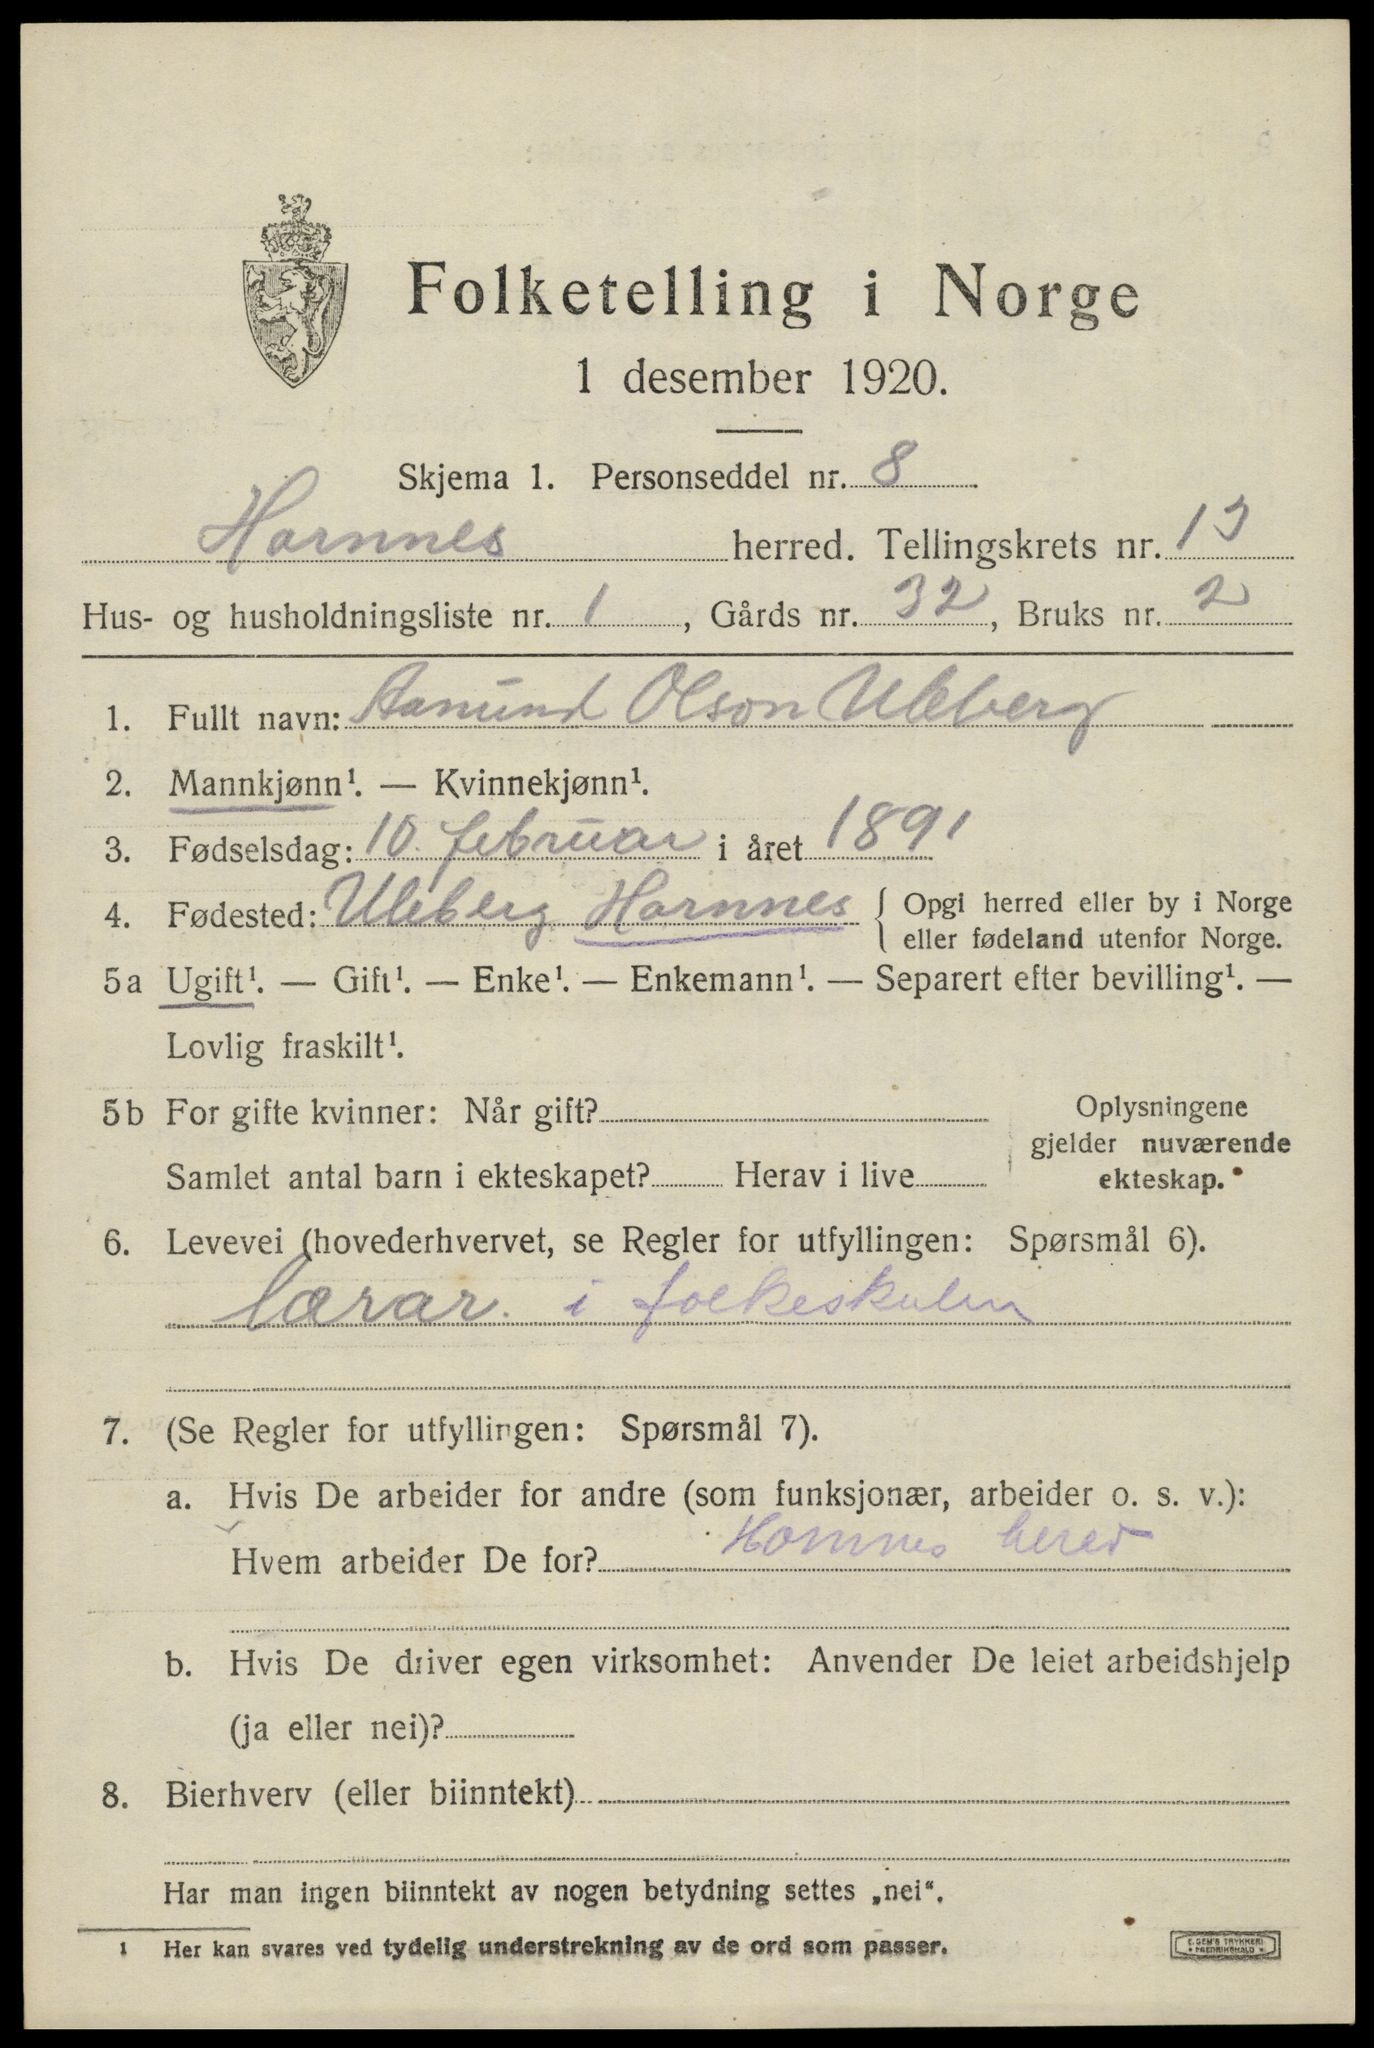 Folketelling i Norge
1 desember 1920.
Skjema 1. Personseddel nr. 8
Hornnes herred. Tellingskrets nr. 13
Hus- og husholdningsliste nr. 1, Gårds nr. 32, Bruks nr. 2
1. Fullt navn: Aamund Olson Uleberg
2. Mannkjønn¹. — Kvinnekjønn¹.
3. Fødselsdag: 10. februar i året 1891
4. Fødested: Uleberg Hornnes { Opgi herred eller by i Norge
eller fødeland utenfor Norge.
5a Ugift¹. — Gift¹. — Enke¹. — Enkemann¹. — Separert efter bevilling¹. —
Lovlig fraskilt¹.
5b For gifte kvinner: Når gift?
Samlet antal barn i ekteskapet? Herav i live
Oplysningene
gjelder nuværende
ekteskap.
6. Levevei (hovederhvervet, se Regler for utfyllingen: Spørsmål 6).
Lærar. i folkeskulen
7. (Se Regler for utfyllingen: Spørsmål 7).
a. Hvis De arbeider for andre (som funksjonær, arbeider o. s. v.):
Hvem arbeider De for? Hornnes herad
b. Hvis De driver egen virksomhet: Anvender De leiet arbeidshjelp
(ja eller nei)?
8. Bierhverv (eller biinntekt)
Har man ingen biinntekt av nogen betydning settes „nei“.
1 Her kan svares ved tydelig understrekning av de ord som passer.
E. SEM'S TRYKKERI
FREDRIKSHALD